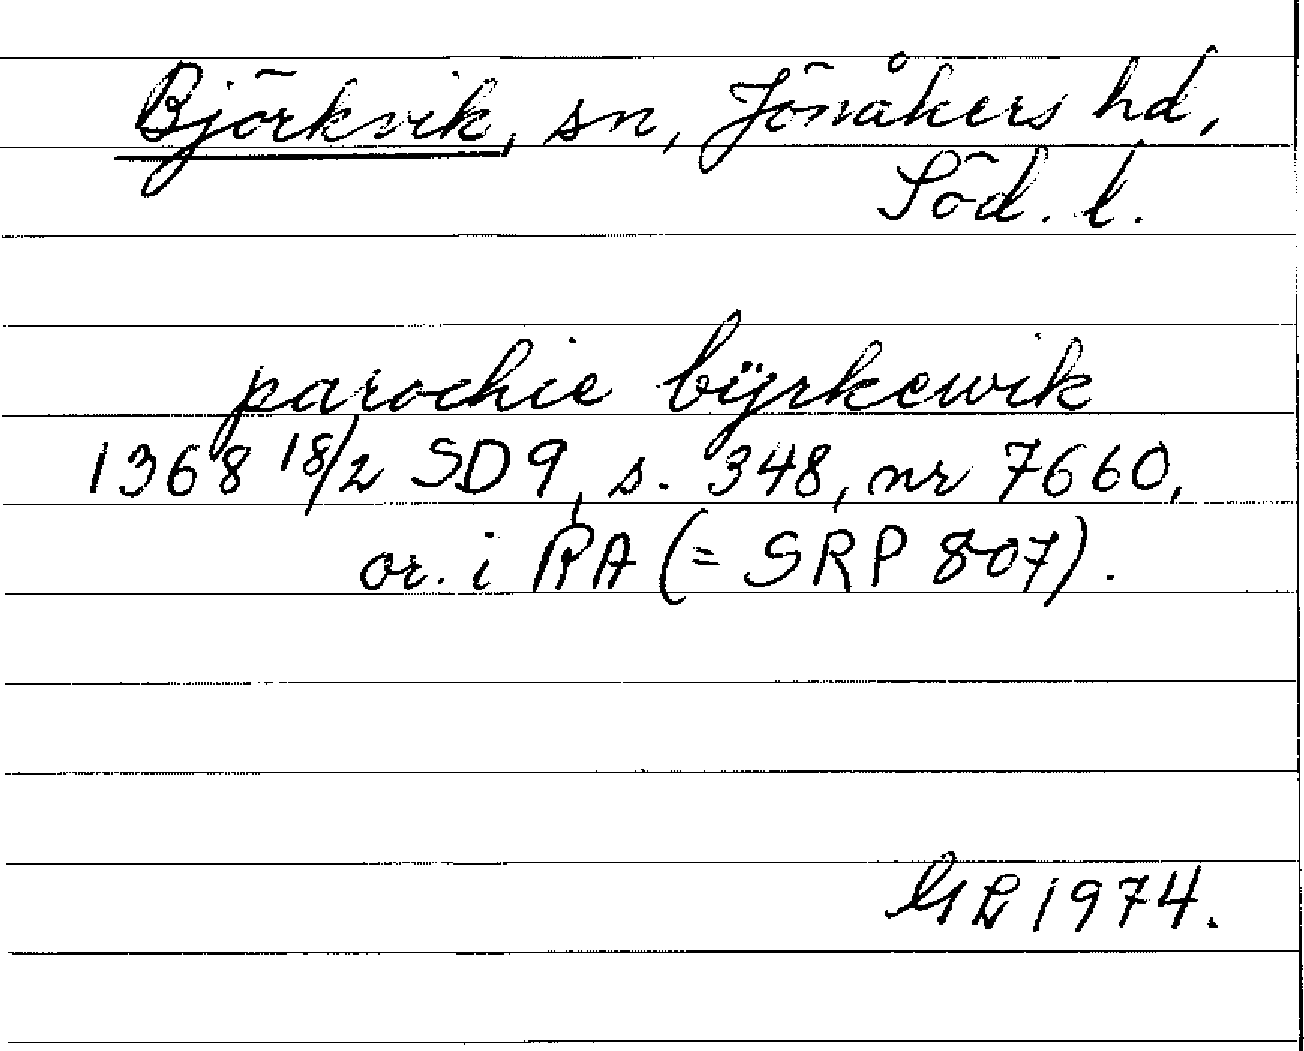 Björkvik, sn, Jönåkers hd,
Söd. l.
parochie bÿrkewik
1368 18/2 SD 9, s. 348, nr 7660,
or. i RA (= SRP 807).
GL 1974.